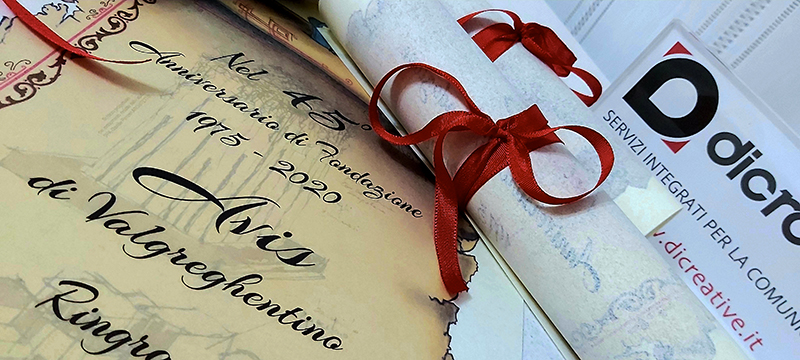 Nel 45°
Anniversario di Fondazione
1975 - 2020
Avis
di Valgreghentino
Ringra
D dicr
SERVIZI INTEGRATI PER LA COMUN
.dicreative.it